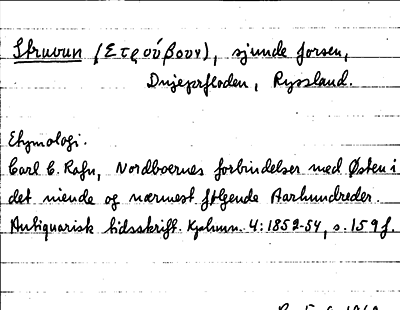 Struvun (Στρούβουν), sjunde forsen,
Dnjeprfloden, Ryssland.
Etymologi.
Carl C. Rafn, Nordboernes forbindelser med Østen i
det niende og nærmest følgende Aarhundreder.
Antiquarisk tidsskrift. Kjøhvn. 4: 1852-54, s. 159 f.